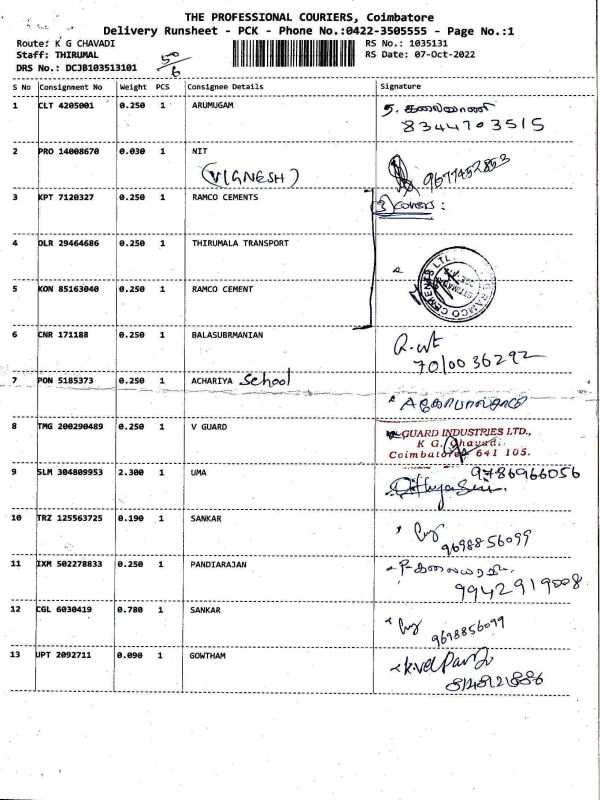 THE PROFESSIONAL COURIERS, Coimbatore
Delivery Runsheet - PCK - Phone No.:0422-3505555 - Page No.:1
Route: K G CHAVADI RS No.: 1035131
Staff: THIRUMAL RS Date: 07-Oct-2022
DRS No.: DCJB103513101 50/6
S No Consignment No Weight PCS Consignee Details Signature
1 CLT 4205001 0.250 1 ARUMUGAM த. கலைவாணி
8344703515
2 PRO 14008670 0.030 1 NIT 9677452853
(VIGNESH)
3 KPT 7120327 0.250 1 RAMCO CEMENTS (3) covers:
4 OLR 29464686 0.250 1 THIRUMALA TRANSPORT
THE RAMCO CEMENTS LTD.
5 KON 85163040 0.250 1 RAMCO CEMENT
6 CNR 171188 0.250 1 BALASUBRMANIAN
7010036292
7 PON 5185373 0.250 1 ACHARIYA School
8 TMG 200290489 0.250 1 V GUARD V-GUARD INDUSTRIES LTD.,
K G. Chavadi.
Coimbatore 641 105.
9 SLM 304809953 2.300 1 UMA 9786966056
10 TRZ 125563725 0.190 1 SANKAR
9698856099
11 IXM 502278833 0.250 1 PANDIARAJAN
9942919008
12 CGL 6030419 0.780 1 SANKAR
9698856099
13 UPT 2092711 0.090 1 GOWTHAM